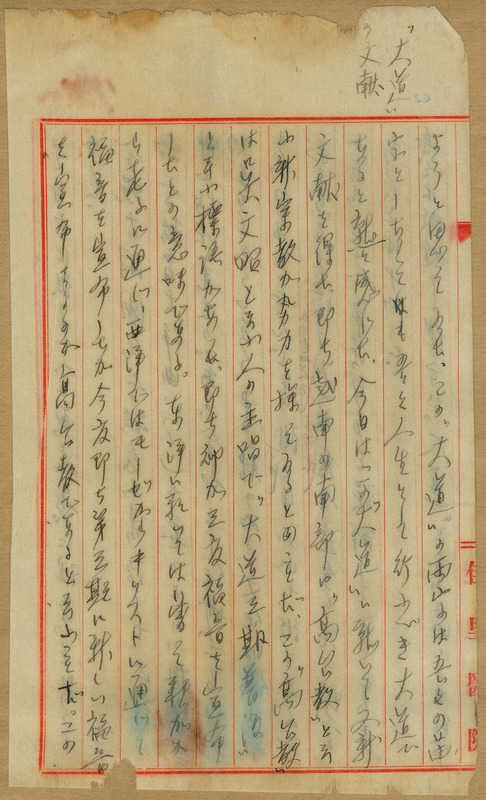 "大道"
の文献
ようと思って居る。この、大道の両山々は吾々の苗
字としもちろん吾々人生として行ふべき大道で
あると熱々感じた。今日は一つ"大道"に就いて又新
文献を得た 即ち越南の南部に"高台教"と云
ふ新宗教が勢力を振って居ると云ふことだ。この"高台教"
は呉文昭と云ふ人の主唱で"大道三期普度"
と云ふ標語がある。即ち神が三度福音を宣布
したとの意味である。東洋に於いては曽て釈迦及
び老子に通じ、西洋ではモーゼ及キリストに通じて
福音を宣布したが今度即ち第三期に新しい福音
を宣布するのが高台教であると云ふことだ。この
佳里醫院